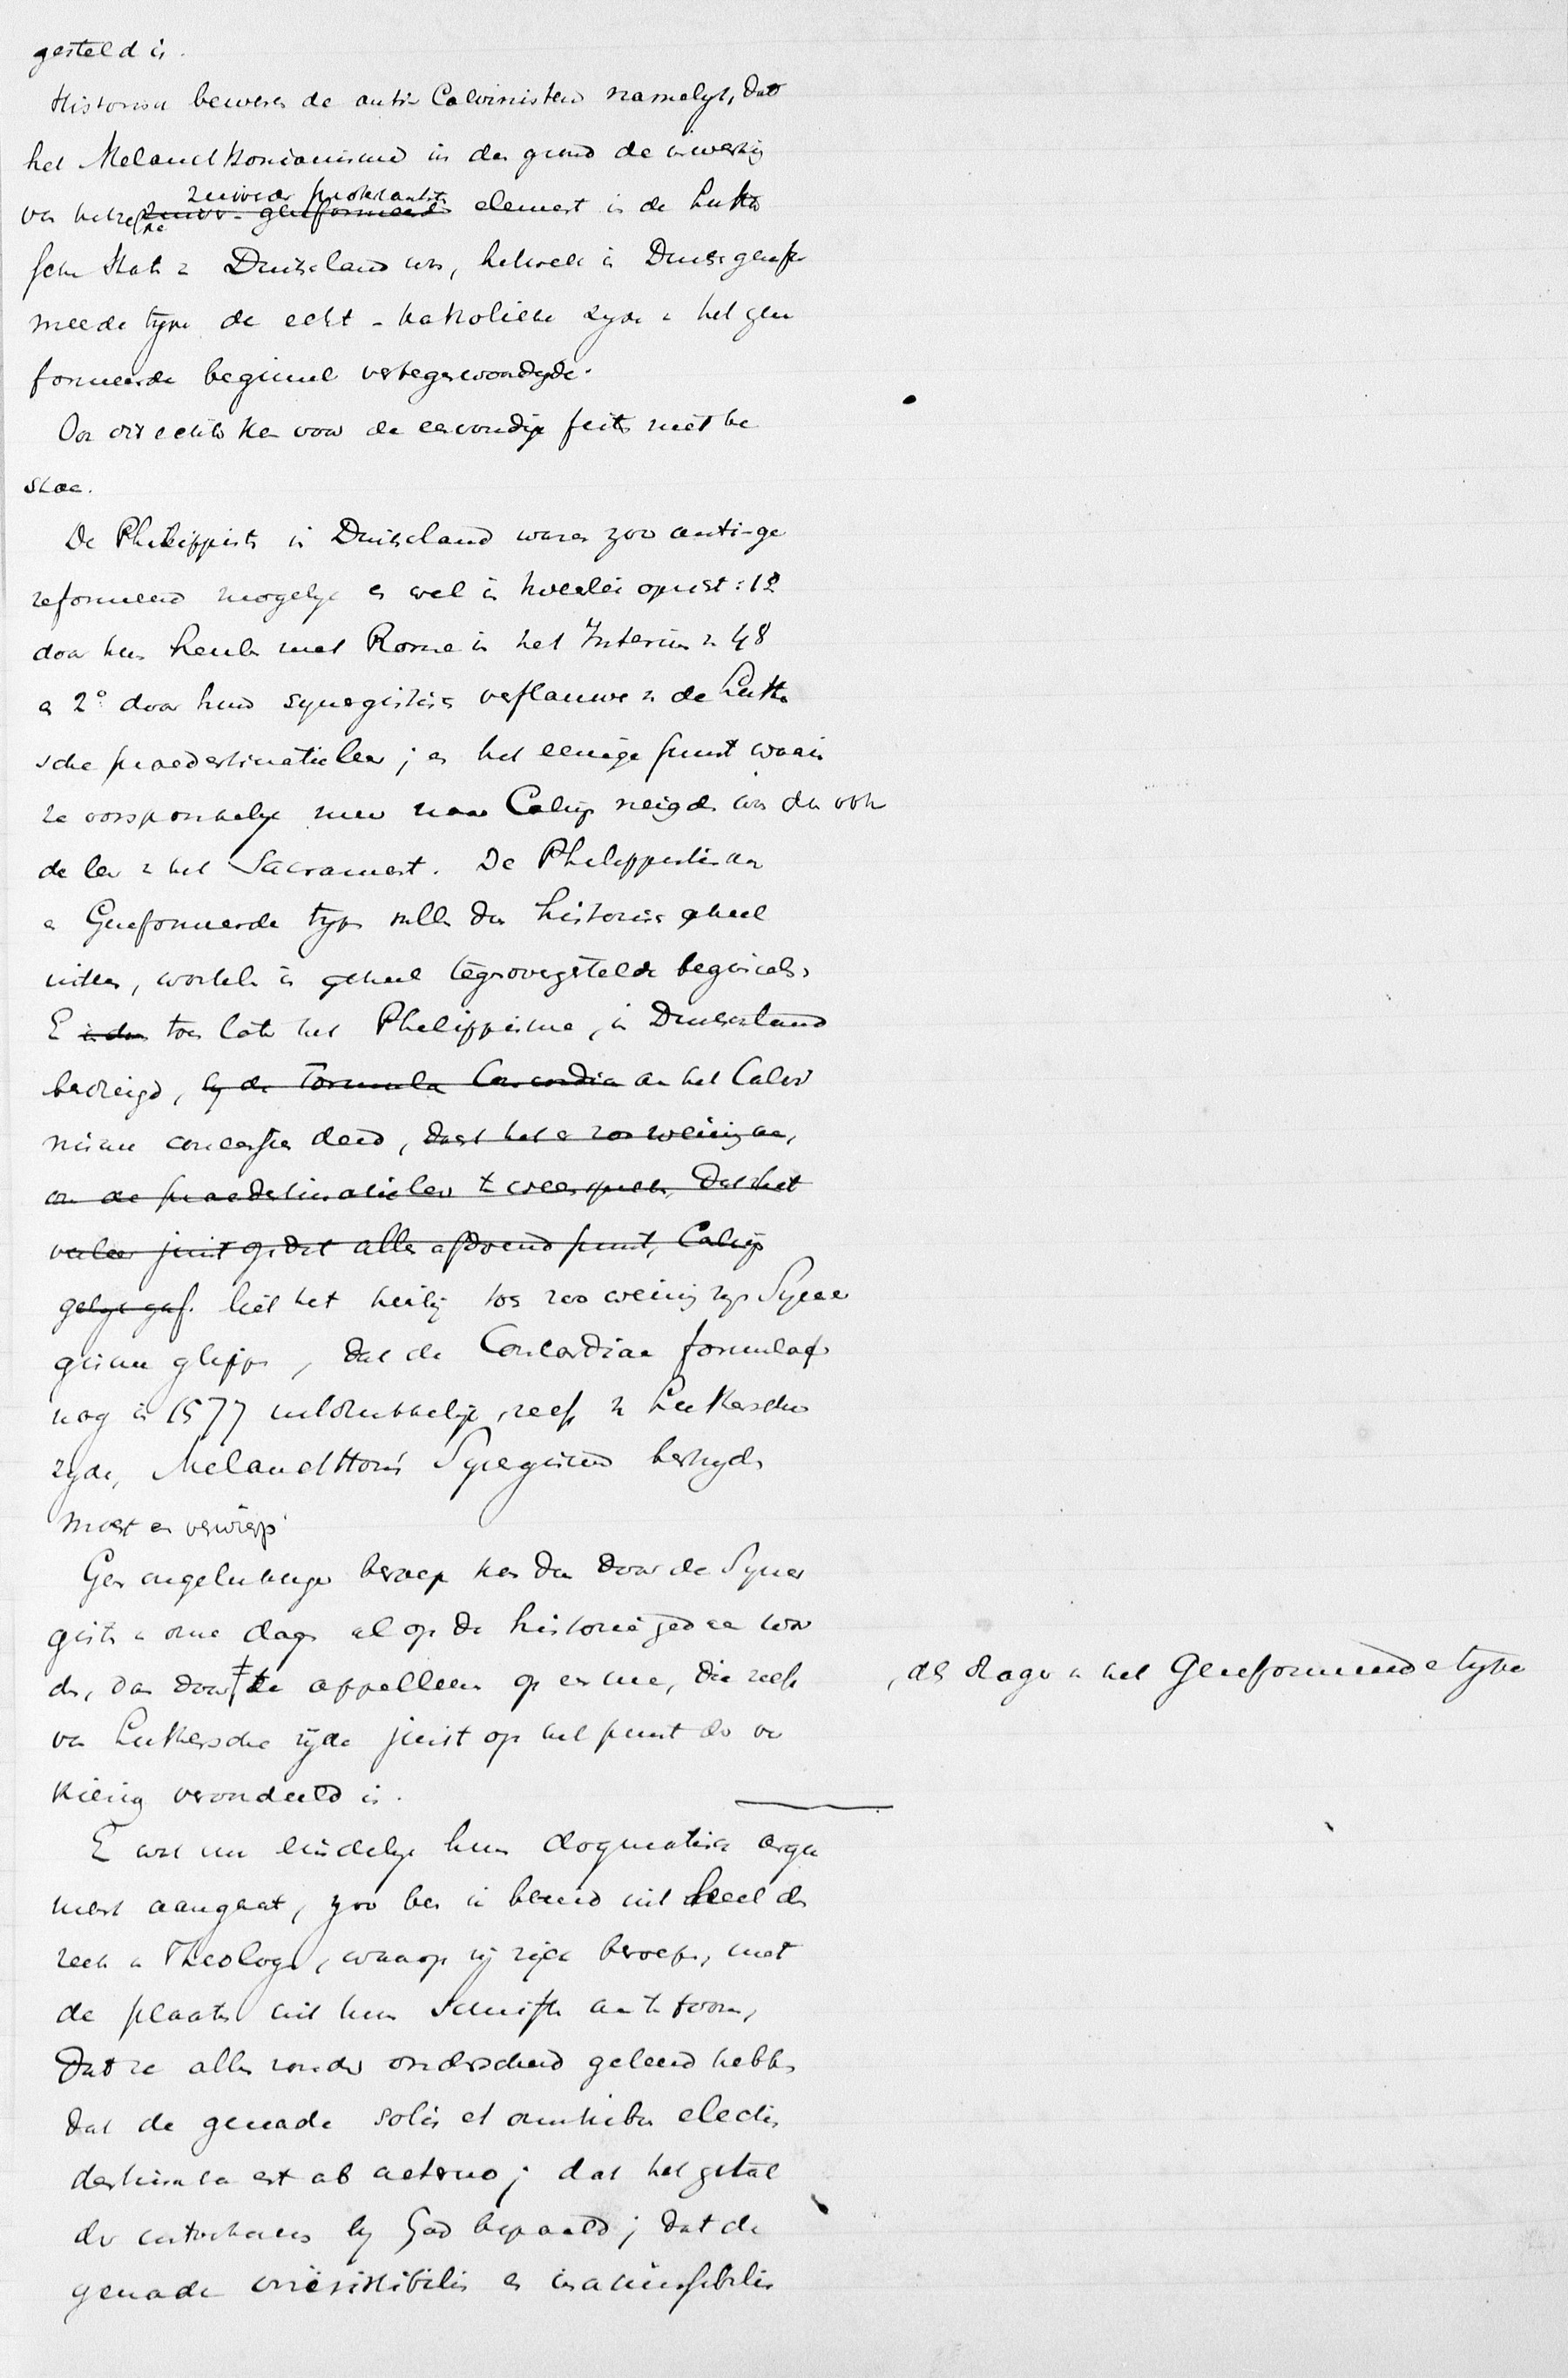 gesteld is.
Historisch beweren de anti-Calvinisten namelijk, dat
het Melanchtonianisme in den grond de inwerking
van het zuiver protestantsche element in de Luther
sche Kerk in Duitschland was, hetwelk in Duitsch gerefor
meerde type de echt-katholieke zijde in het gere
formeerde beginsel vertegenwoordigde.
Ook dit echter kan voor de eenvoudige feiten niet be
staan.
De Philippisten in Duitschland waren zoo anti-ge
reformeerd mogelijk en wel in tweeërlei opzicht: 1º
door hun heulen met Rome in het Interim van 48
en 2º door hun synergistisch verflauwen van de Luther
sche praedestinatieleer; en het eenige punt waarin
ze oorspronkelijk meer naar Calvijn neigden was dan ook
de leer van het Sacrament. De Philippistische
en Gereformeerde type vallen dus historisch geheel
uiteen, wortelen in geheel tegenovergestelde beginselen.
En in den toen later het Philippisme, in Duitschland
bedreigd, bij de Formula Concordiae aan het Calvi
nisme concessies deed, dacht het er zoo weinig aan,
om de praedestinatieleer te weerspreken, dat het
veeleer juist op dit alles afdoend punt, Calvijn
gelijk gaf. liet het hierbij toch zoo weinig zijn Syner
gisme glippen, dat de Concordiae formula
nog in 1577 uitdrukkelijk, zelfs van Luthersche
zijde, Melanchtons Synergisme bestrijden
moest en verwierp.
Geen ongelukkiger beroep kan dan door de Syner
gisten in onze dagen al op de historie gedaan wor
den, dan door te appelleeren op een man, die zelfs
, als drager van het Gereformeerde type
van Luthersche zijde juist op het punt der ver
kiezing veroordeeld is.
En wat nu eindelijk hun dogmatisch argu
ment aangaat, zoo ben ik bereid uit heel de
reeks van Theologen, waarop zij zich beroepen, met
de plaatsen uit hun schriften aan te toonen,
dat ze allen zonder onderscheid geleerd hebben
dat de genade solis et omnibus electis
destinata est ab aeterno; dat het getal
der uitverkorenen bij God bepaald; dat de
genade irresistibilis en inamissibilis